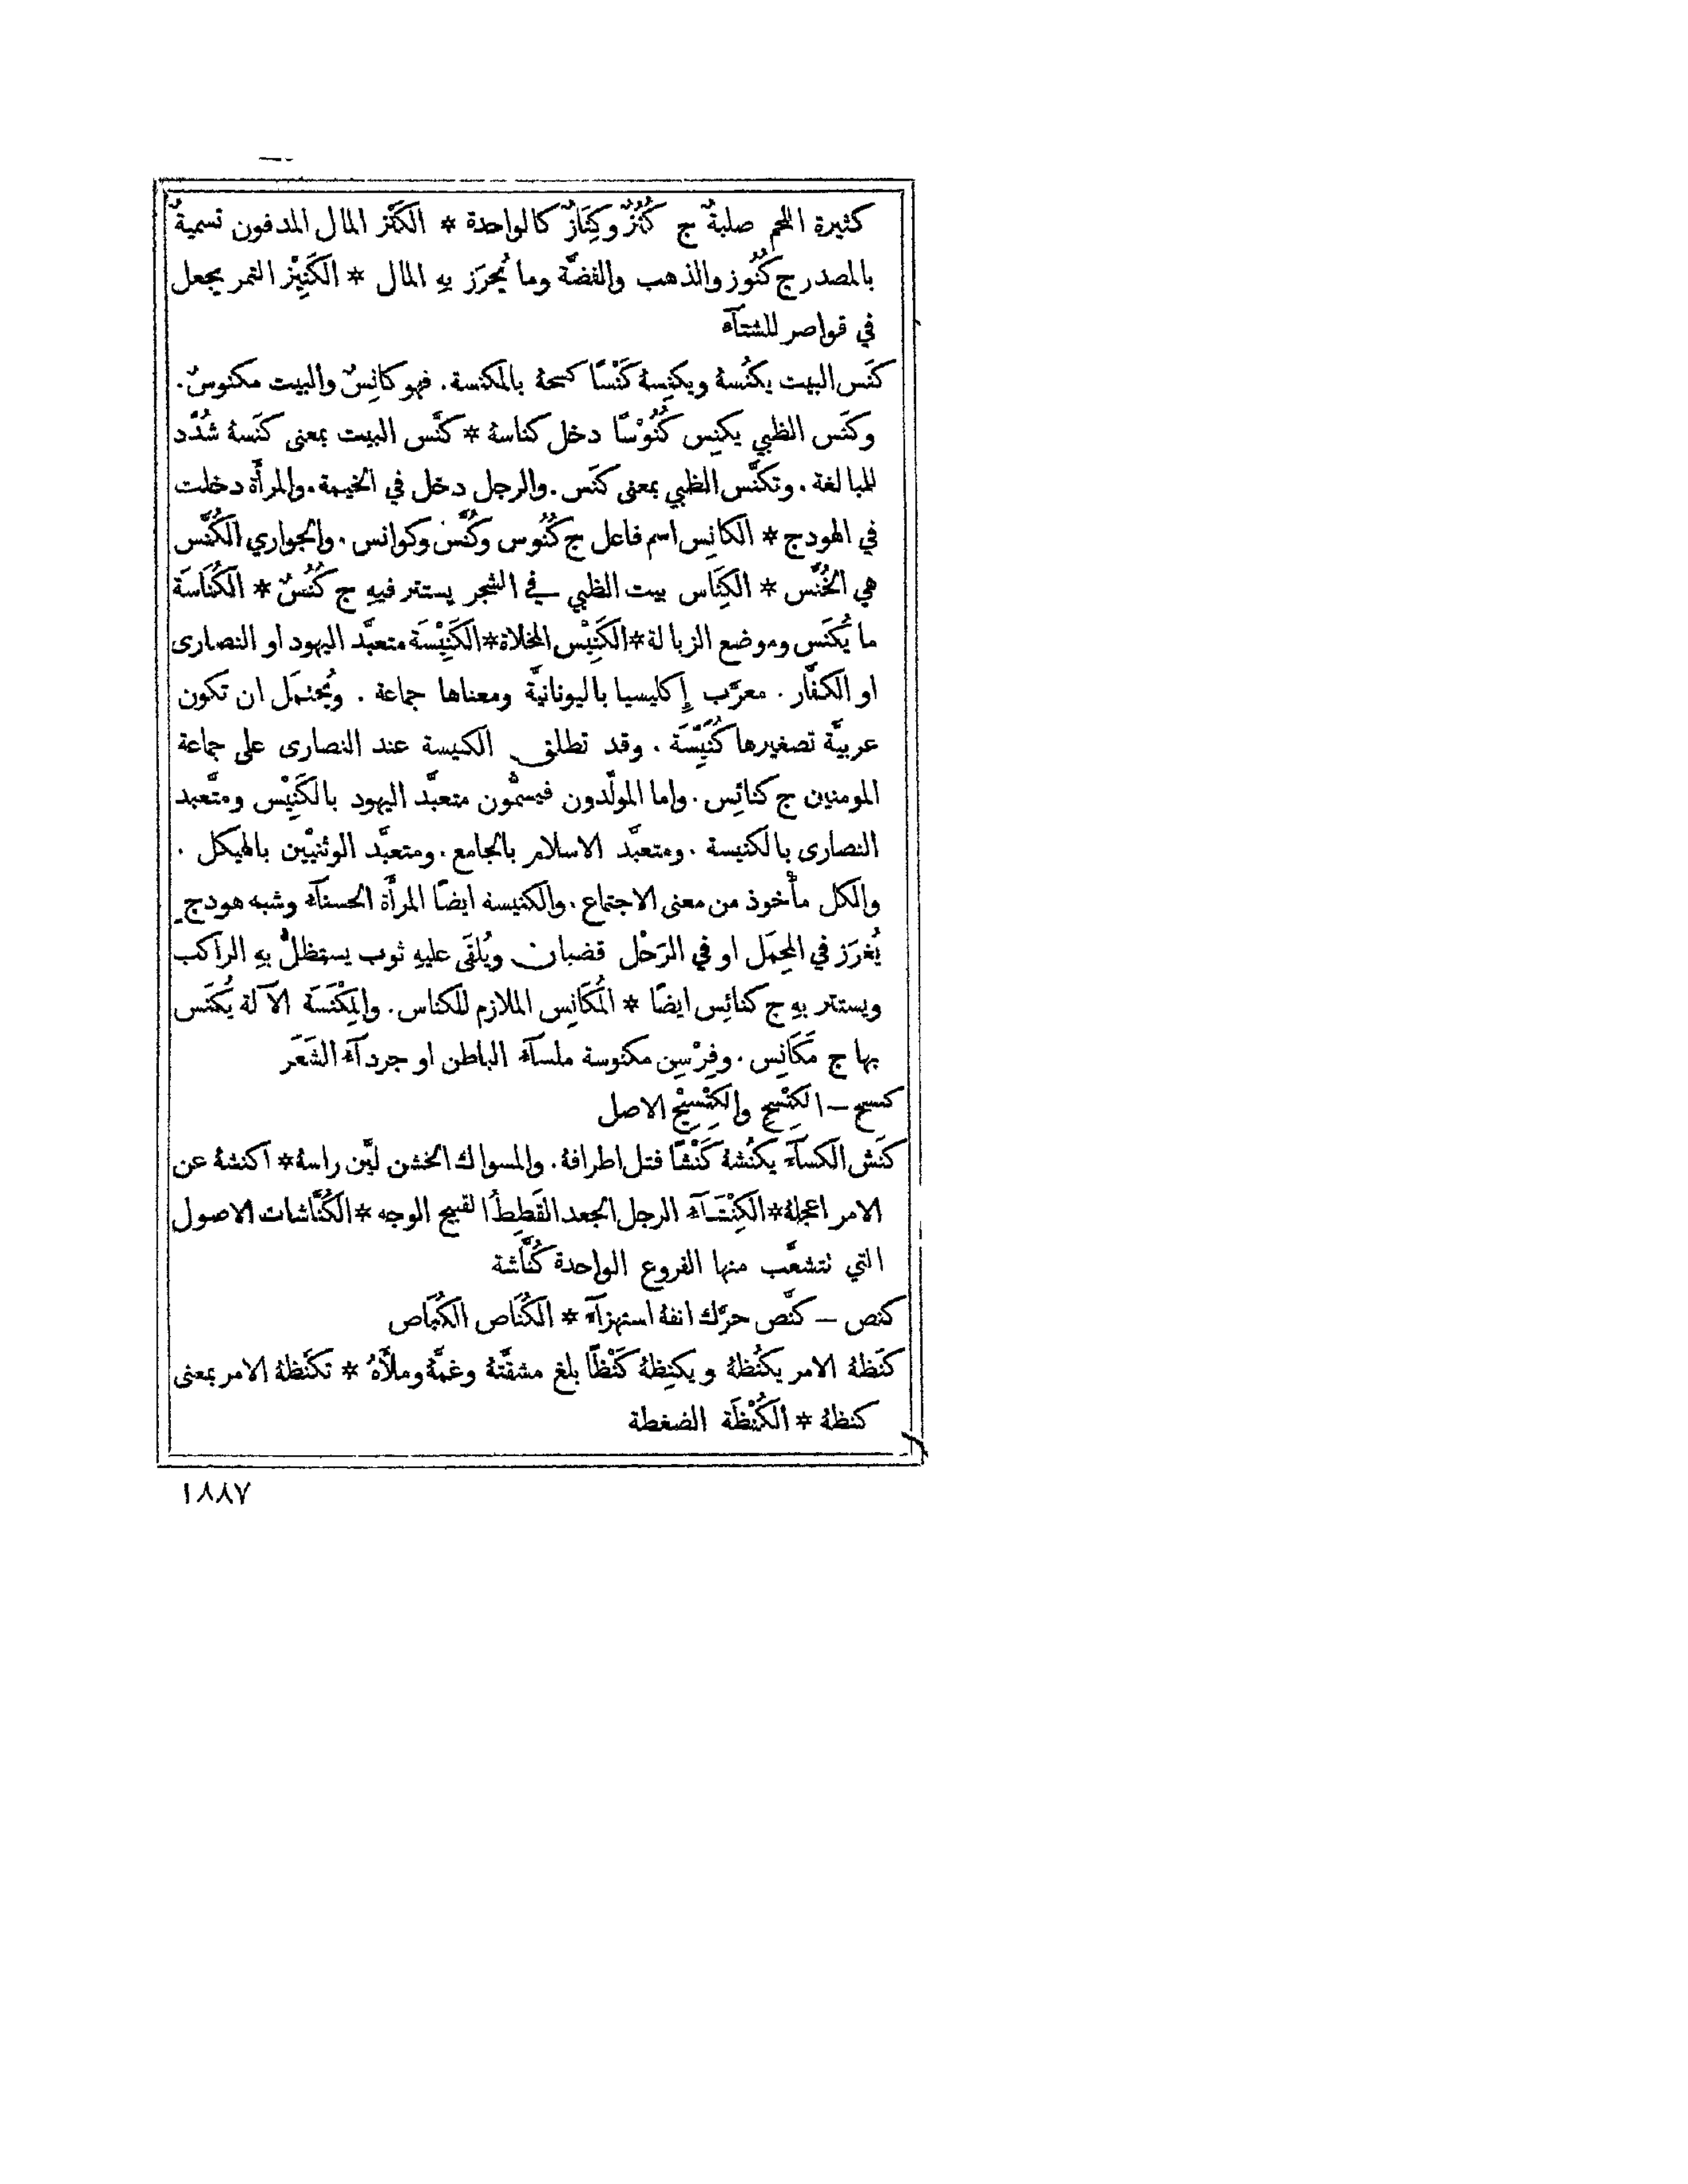 كثيرة اللحم صلبةٌ ج كُنُزٌ وكِنَازٌ كالواحدة * الكَنْز المال المدفون تسميةٌ
بالمصدر ج كُنُوز والذهب والفضَّة وما يُحرَز بهِ المال * الكَنِيْز التمر يجعل
في قواصر للشتآء
كنَس البيت يكنُسهُ ويكنِسهُ كَنْسًا كسحهُ بالمكنسة. فهو كانِسٌ والبيت مكنوسٌ.
وكنَس الظبي يكنِس كُنُوْسًا دخل كناسهُ * كنَّس البيت بمعنى كنَسهُ شُدِّد
للمبالغة. وتكنَّس الظبي بمعنى كنَس. والرجل دخل في الخيمة. والمرأَة دخلت
في الهودج * الكانِس اسم فاعل ج كُنُوس وكُنَّس وكوانس. والجواري الكُنَّس
هي الخُنَّس * الكِنَاس بيت الظبي في الشجر يستتر فيهِ ج كُنُسٌ * الكُنَاسَة
ما يُكنَس وموضع الزبالة * الكَنِيْس المخلاة * الكَنِيْسَة متعبَّد اليهود او النصارى
او الكفَّار. معرَّب إِكليسيا باليونانيَّة ومعناها جماعة. ويُحتمَل ان تكون
عربيَّة تصغيرها كُنَيِّسَة. وقد تطلق الكيسة عند النصارى على جماعة
المومنين ج كنائِس. واما المولَّدون فيسمُّون متعبَّد اليهود بالكَنِيْس ومتعَّبد
النصارى بالكنيسة. ومتعبَّد الاسلام بالجامع. ومتعبَّد الوثنيّين بالهيكل.
والكل مأْخوذ من معنى الاجتماع. والكنيسة ايضًا المرأَة الحسنآء وشبه هودجٍ
يُغرَز في المحِمَل او في الرَحْل قضبان ويُلقَى عليهِ ثوب يستظلُّ بهِ الراكب
ويستتر بهِ ج كنائِس ايضًا * المُكَانِس الملازم للكناس. والمِكْنَسَة الآلة يُكنَس
بها ج مَكَانِس. وفِرْسِن مكنوسة ملسآء الباطن او جردآء الشَعَر
كنسح — الكِنْسِح والكِنْسِيْح الاصل
كنَش الكسآء يكنُشهُ كَنْشًا فتل اطرافهُ. والمسواك الخشن ليَّن راسهُ * اكنشهُ عن
الامر اعجلهُ * الكِنْشَآء الرجل الجعد القَطِطُ القبيح الوجه * الكُنَّاشات الاصول
التي تتشعَّب منها الفروع الواحدة كُنَّاشة
كنص — كنَّص حرَّك انفهُ استهزآء * الكُنَاص الكُبَاص
كنَظهُ الامر يكنُظهُ ويكنِظهُ كَنْظًا بلغ مشقَّتهُ وغمَّهُ وملأَهُ * تكنَّظهُ الامر بمعنى
كنظهُ * الكُنْظَة الضغطة
١٨٨٧